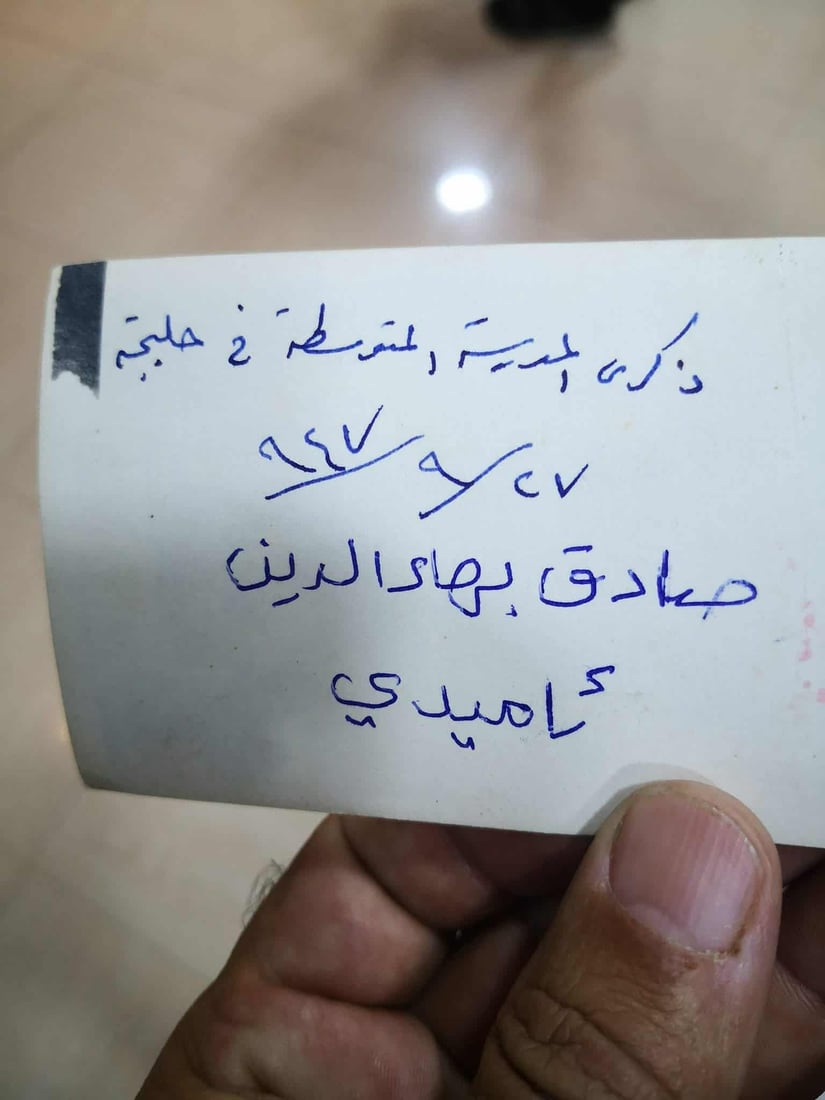 ذكرى المدرسة المتوسطة في حلبجة
٢٧/٩/٩٤٧
صادق بهاءالدين
ئاميدي